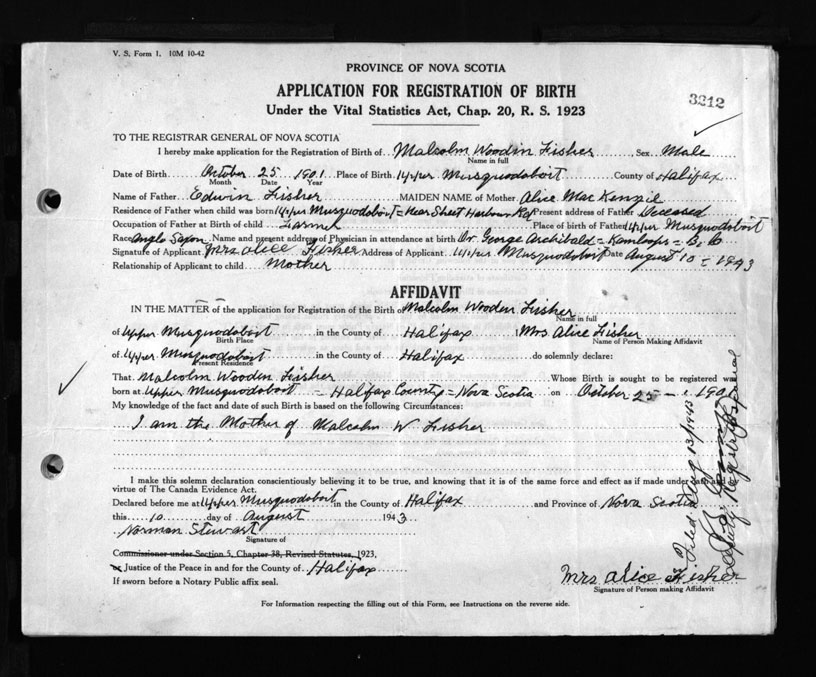 V. S. Form 1. 10M 10-42
PROVINCE OF NOVA SCOTIA
APPLICATION FOR REGISTRATION OF BIRTH
Under the Vital Statistics Act, Chap. 20, R. S. 1923
3212
TO THE REGISTRAR GENERAL OF NOVA SCOTIA
I hereby make application for the Registration of Birth of Malcolm Woodin Fisher, Sex Male
Name in full
Date of Birth October 25 1901 Place of Birth Upper Musquodoboit County of Halifax
Month Date Year
Name of Father Edwin Fisher MAIDEN NAME of Mother Alice MacKenzie
Residence of Father when child was born Upper Musquodoboit = Near Sheet Harbour Rd Present address of Father Deceased
Occupation of Father at Birth of child Farmer Place of birth of Father Upper Musquodoboit
Race Anglo Saxon Name and present address of Physician in attendance at birth Dr. George Archibald = Kamloops = B. C
Signature of Applicant Mrs Alice Fisher Address of Applicant Upper Musquodoboit Date August 10 = 1943
Relationship of Applicant to child Mother
AFFIDAVIT
IN THE MATTER of the application for Registration of the Birth of Malcolm Wooden Fisher
Name in full
of Upper Musquodoboit in the County of Halifax Mrs. Alice Fisher
Birth Place Name of Person Making Affidavit
of Upper Musquodoboit in the County of Halifax do solemnly declare:
Present Residence
That Malcolm Wooden Fisher Whose Birth is sought to be registered was
born at Upper Musquodoboit = Halifax County = Nova Scotia on October 25 190
My knowledge of the fact and date of such Birth is based on the following Circumstances:
I am the Mother of Malcolm W Fisher
I make this solemn declaration conscientiously believing it to be true, and knowing that it is of the same force and effect as if made under oath and
virtue of The Canada Evidence Act.
Declared before me at Upper Musquodoboit in the County of Halifax and Province of Nova Scotia
this 10 day of August 1943
Norman Stewart
Signature of
Commissioner under Section 5, Chapter 38, Revised Statutes, 1923,
or Justice of the Peace in and for the County of Halifax
If sworn before a Notary Public affix seal.
Mrs. Alice Fisher
Signature of Person making Affidavit
For Information respecting the filling out of this Form, see Instructions on the reverse side.
Filed Aug 13/1943
Deputy Registrar General